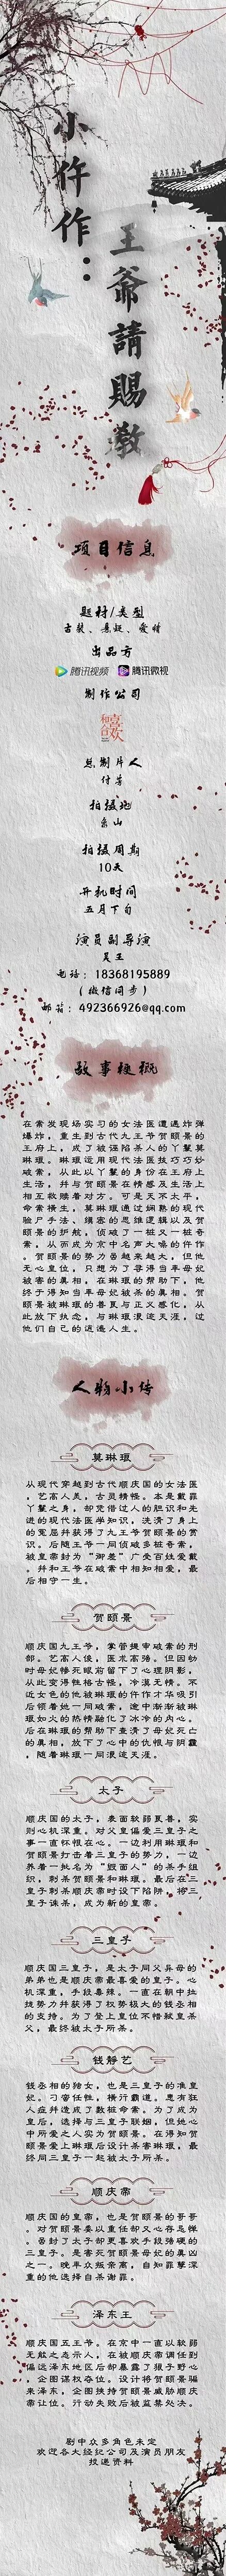 小仵作：
王爺請賜教
项目信息
题材/类型
古装、悬疑、爱情
出品方
腾讯视频 腾讯微视
制作公司
和合喜欢
总制片人
付芳
拍摄地
象山
拍摄周期
10天
开机时间
五月下旬
演员副导演
吴王
电话：18368195889
（微信同步）
邮箱：492366926@qq.com
故事梗概
在案发现场实习的女法医遭遇炸弹
爆炸，重生到古代九王爷贺颐景的
王府上，成了被诬陷杀人的丫鬟莫
琳琅。琳琅运用现代法医技巧巧妙
破案，从此以丫鬟的身份在王府上
生活，并与贺颐景在情感及生活上
相互救赎着对方。可是天不太平，
命案横生，莫琳琅通过娴熟的现代
验尸手法、缜密的思维逻辑以及贺
颐景的护航，侦破了一桩又一桩奇
案，从而成为京中名声大噪的仵作
。贺颐景的势力虽越来越大，但他
无心皇位，只想为了寻得当年母妃
被害的真相，在琳琅的帮助下，他
终于得知当年母妃被杀的真相。贺
颐景被琳琅的善良与正义感化，从
此放下执念，与琳琅浪迹天涯，过
他们自己的逍遥人生。
人物小传
莫琳琅
从现代穿越到古代顺庆国的女法医
，艺高人美，古灵精怪。本是戴罪
丫鬟之身，却凭借过人的胆识和先
进的现代法医学知识，洗清了身上
的冤屈并获得了九王爷贺颐景的赏
识。后随王爷一同侦破多桩奇案，
被皇帝封为“御差”广受百姓爱戴
。并和王爷在破案中相知相爱，最
后相守一生。
贺颐景
顺庆国九王爷，掌管提审破案的刑
部。艺高人俊，医术高强。但因幼
时母妃惨死眼前留下了心理阴影，
从此变得性格古怪，冷漠无情。不
近女色的他被琳琅的仵作才华吸引
后领着她一同破案，途中渐渐被琳
琅如火的热情融化了冰冷的内心。
后在琳琅的帮助下查清了母妃死亡
的真相，放下了心中的仇恨与阴霾
，随着琳琅一同浪迹天涯。
太子
顺庆国的太子，表面软弱良善，实
则心机深重。对父皇偏爱三皇子之
事一直怀恨在心。一边利用琳琅和
贺颐景打击着三皇子的势力，一边
养着一批名为“毁面人”的杀手组
织，刺杀贺颐景和琳琅。最后在三
皇子刺杀顺庆帝时设下陷阱，将三
皇子诛杀，成为新的皇帝。
三皇子
顺庆国三皇子，是太子同父异母的
弟弟也是顺庆帝最喜爱的皇子。心
机深重，手段毒辣。一直在朝中拉
拢势力并获得了权势极大的钱丞相
的支持。为了登上皇位不惜弑皇杀
父，最终被太子所杀。
钱静艺
钱丞相的独女，也是三皇子的准皇
妃。刁蛮任性，横行霸道。患有狂
人症并造成了数桩命案。为了成为
皇后，选择与三皇子联姻，但她心
中所爱之人实为贺颐景。在得知贺
颐景爱上琳琅后设计杀害琳琅，最
终同三皇子一起被太子所杀。
顺庆帝
顺庆国的皇帝，也是贺颐景的哥哥
。对贺颐景委以重任却又心存忌惮
。虽封了太子却更喜欢手段强硬的
三皇子。是害死贺颐景母妃的真凶
之一。晚年众叛亲离，自知罪孽深
重的他选择自杀谢罪。
泽东王
顺庆国五王爷。在京中一直以软弱
无欺之态示人，在被顺庆帝调任到
偏远泽东地区后却暴露了狼子野心
，企图谋权夺位。设计将贺颐景骗
来泽东，企图挟持贺颐景威胁顺庆
帝让位。行动失败后被监禁处决。
剧中众多角色未定
欢迎各大经纪公司及演员朋友
投递资料